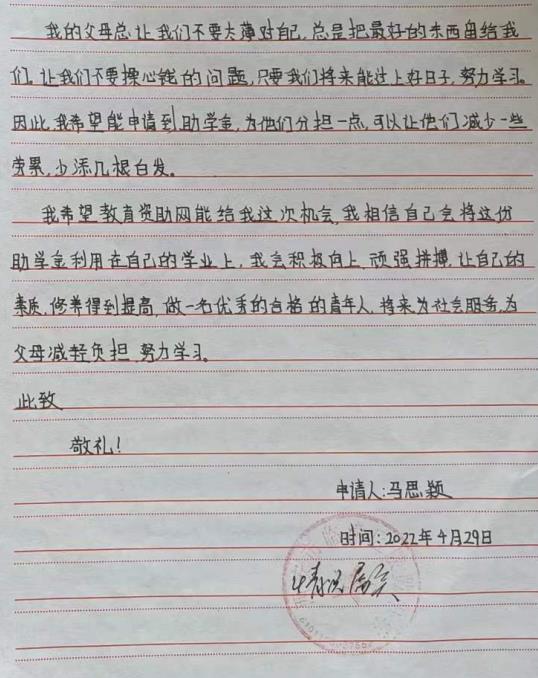 我的父母总让我们不要太薄对自己,总是把最好的东西留给我
们,让我们不要操心钱的问题,只要我们将来能过上好日子,努力学习。
因此,我希望能申请到助学金,为他们分担一点,可以让他们减少一些
劳累,少添几根白发。
我希望教育资助网能给我这次机会,我相信自己会将这份
助学金利用在自己的学业上,我会积极向上,顽强拼搏,让自己的
素质,修养得到提高,做一名优秀的合格的青年人,将来为社会服务,为
父母减轻负担,努力学习。
此致
敬礼!
申请人:马思颖
时间:2022年4月29日
情况属实